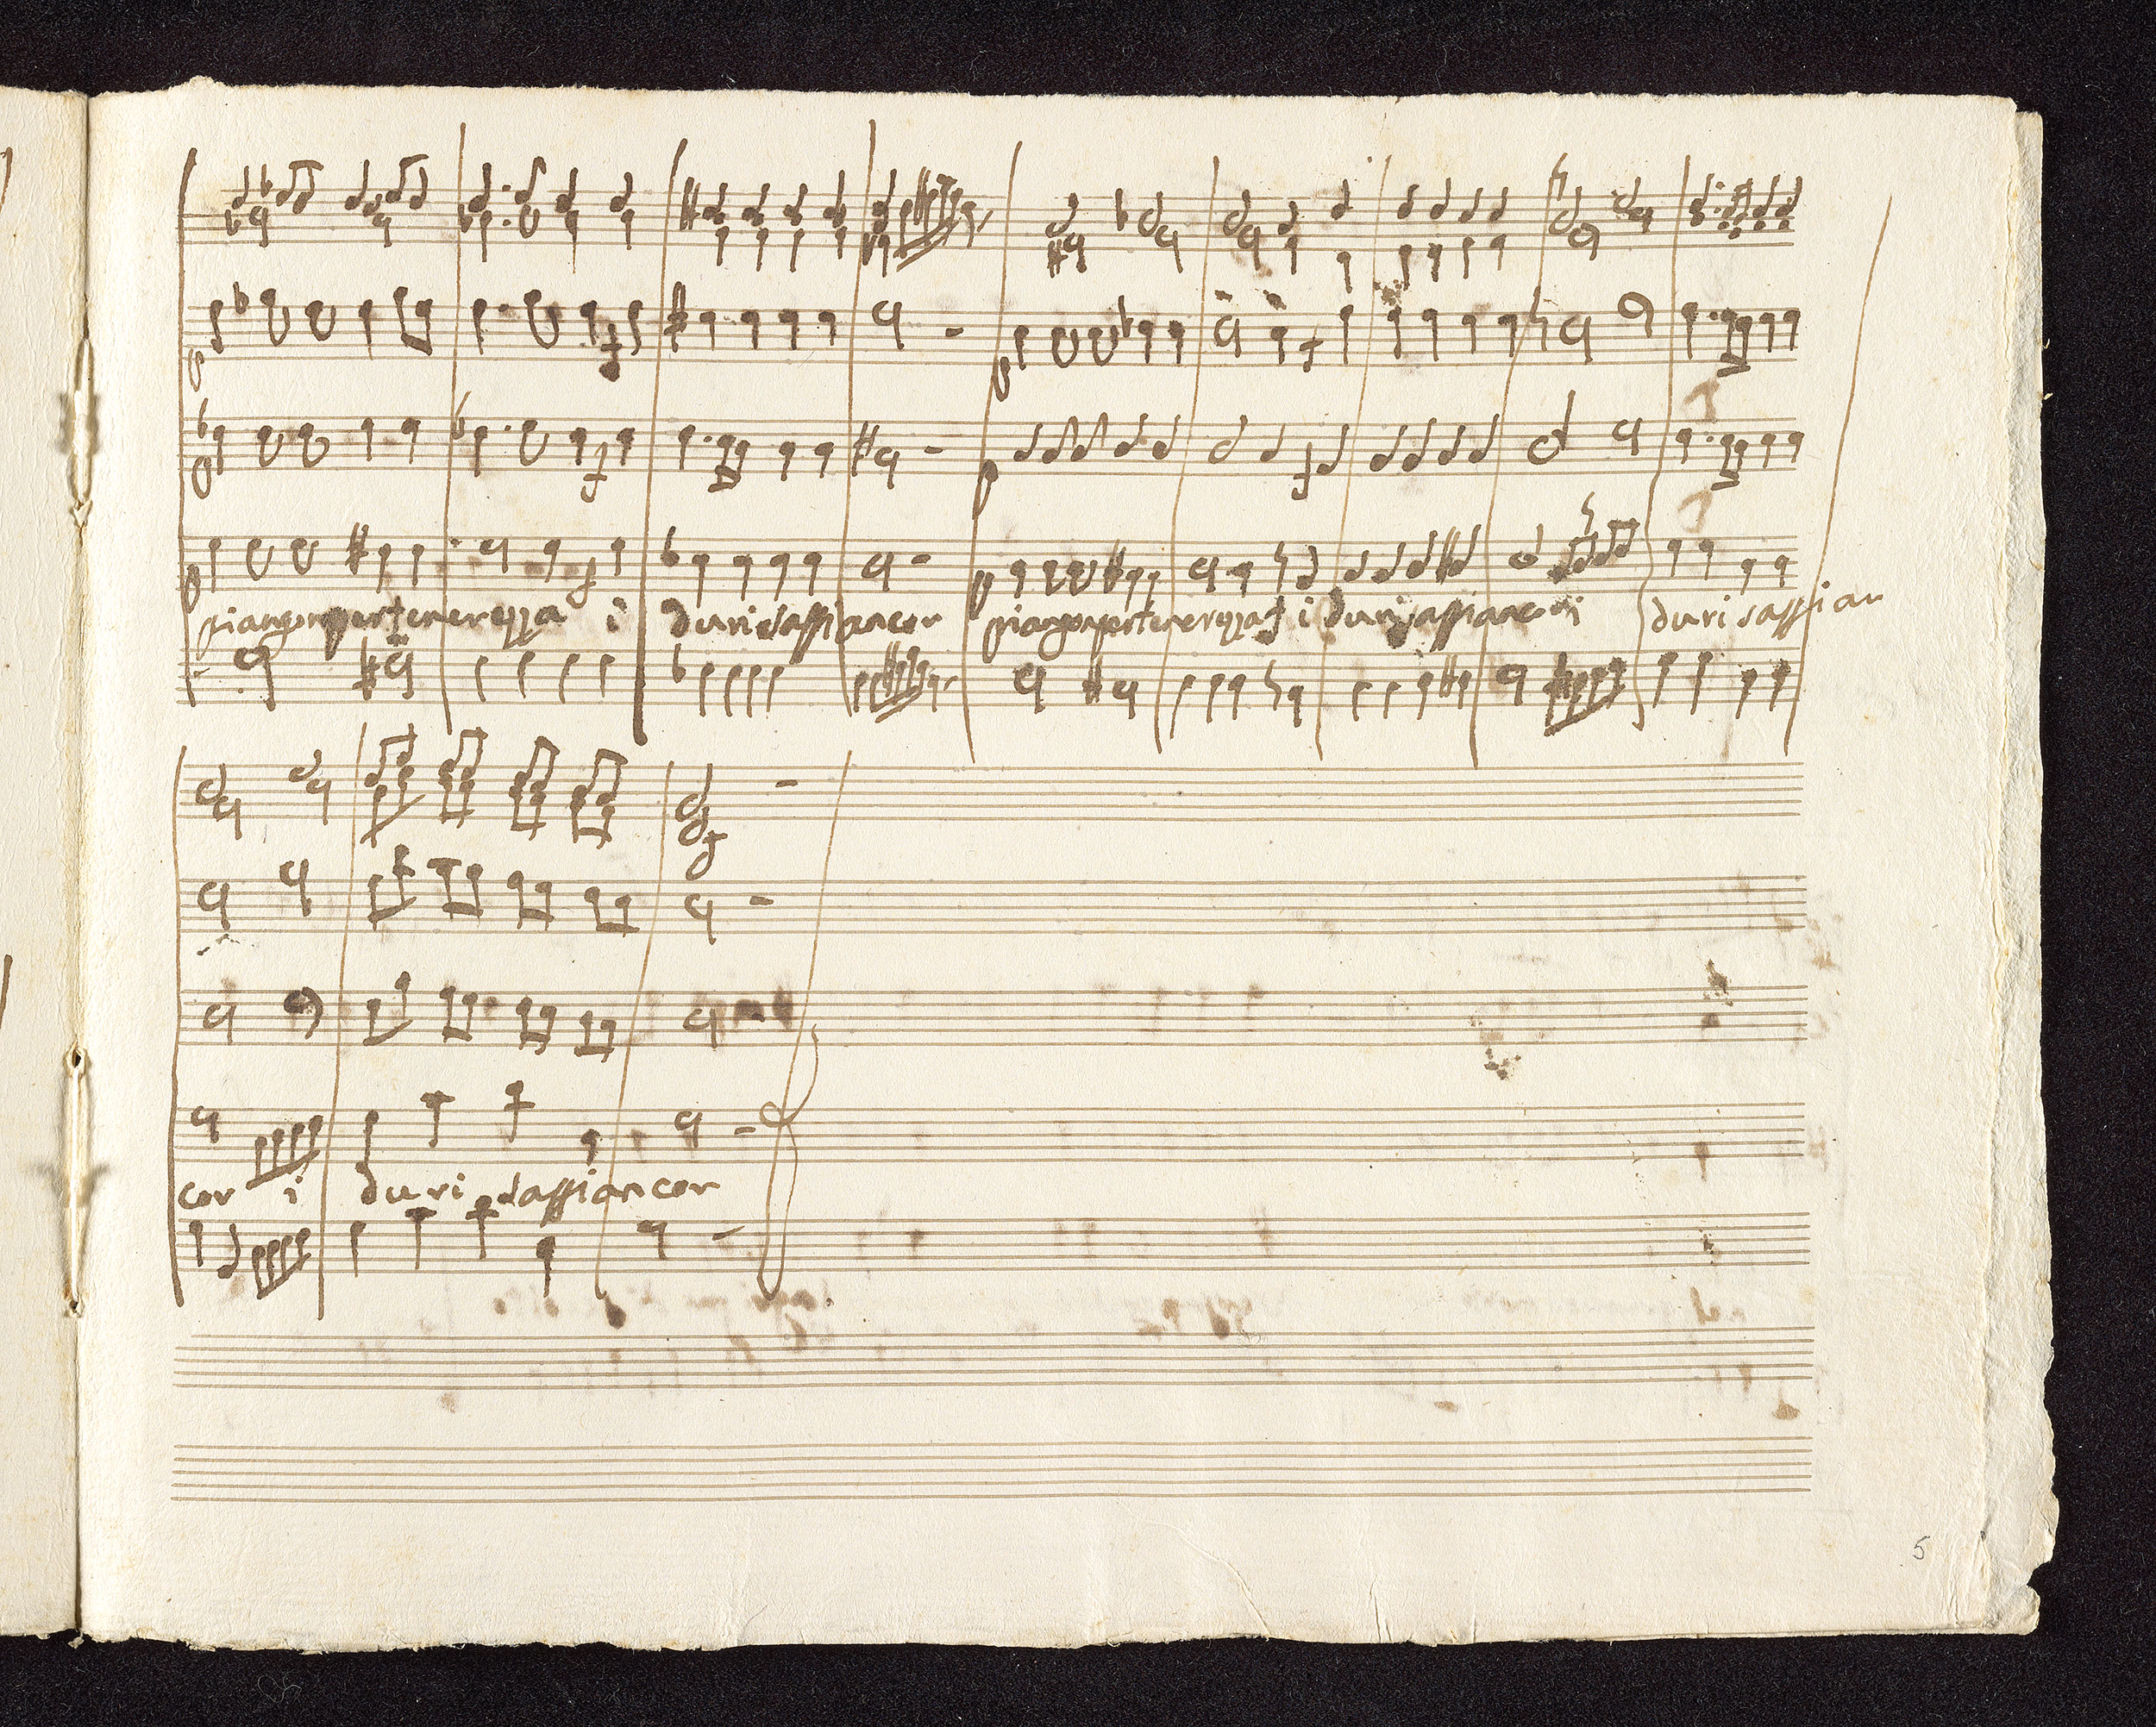 piangon per tenerezza i duri sassi ancor piangon per tenerezza i duri sassi ancor i duri sassi an
cor i duri sassi ancor
5